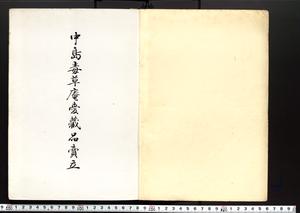 中島毒草庵愛藏品賣立